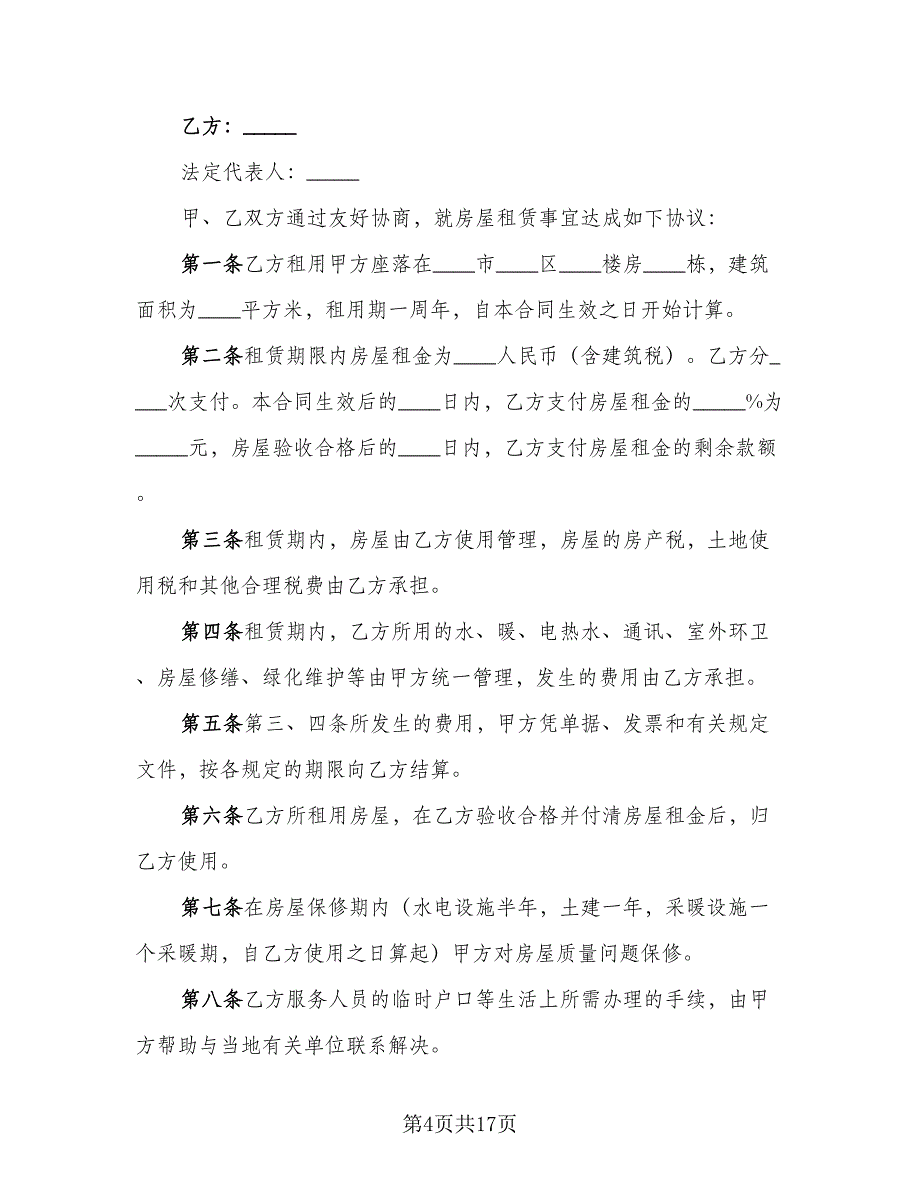 乙方：_____
法定代表人：_____
甲、乙双方通过友好协商，就房屋租赁事宜达成如下协议：
第一条乙方租用甲方座落在____市____区____楼房____栋，建筑
面积为____平方米，租用期一周年，自本合同生效之日开始计算。
第二条租赁期限内房屋租金为____人民币（含建筑税）。乙方分_
___次支付。本合同生效后的____日内，乙方支付房屋租金的_____%为
_____元，房屋验收合格后的____日内，乙方支付房屋租金的剩余款额
。
第三条租赁期内，房屋由乙方使用管理，房屋的房产税，土地使
用税和其他合理税费由乙方承担。
第四条租赁期内，乙方所用的水、暖、电热水、通讯、室外环卫
、房屋修缮、绿化维护等由甲方统一管理，发生的费用由乙方承担。
第五条第三、四条所发生的费用，甲方凭单据、发票和有关规定
文件，按各规定的期限向乙方结算。
第六条乙方所租用房屋，在乙方验收合格并付清房屋租金后，归
乙方使用。
第七条在房屋保修期内（水电设施半年，土建一年，采暖设施一
个采暖期，自乙方使用之日算起）甲方对房屋质量问题保修。
第八条乙方服务人员的临时户口等生活上所需办理的手续，由甲
方帮助与当地有关单位联系解决。
第4页共17页